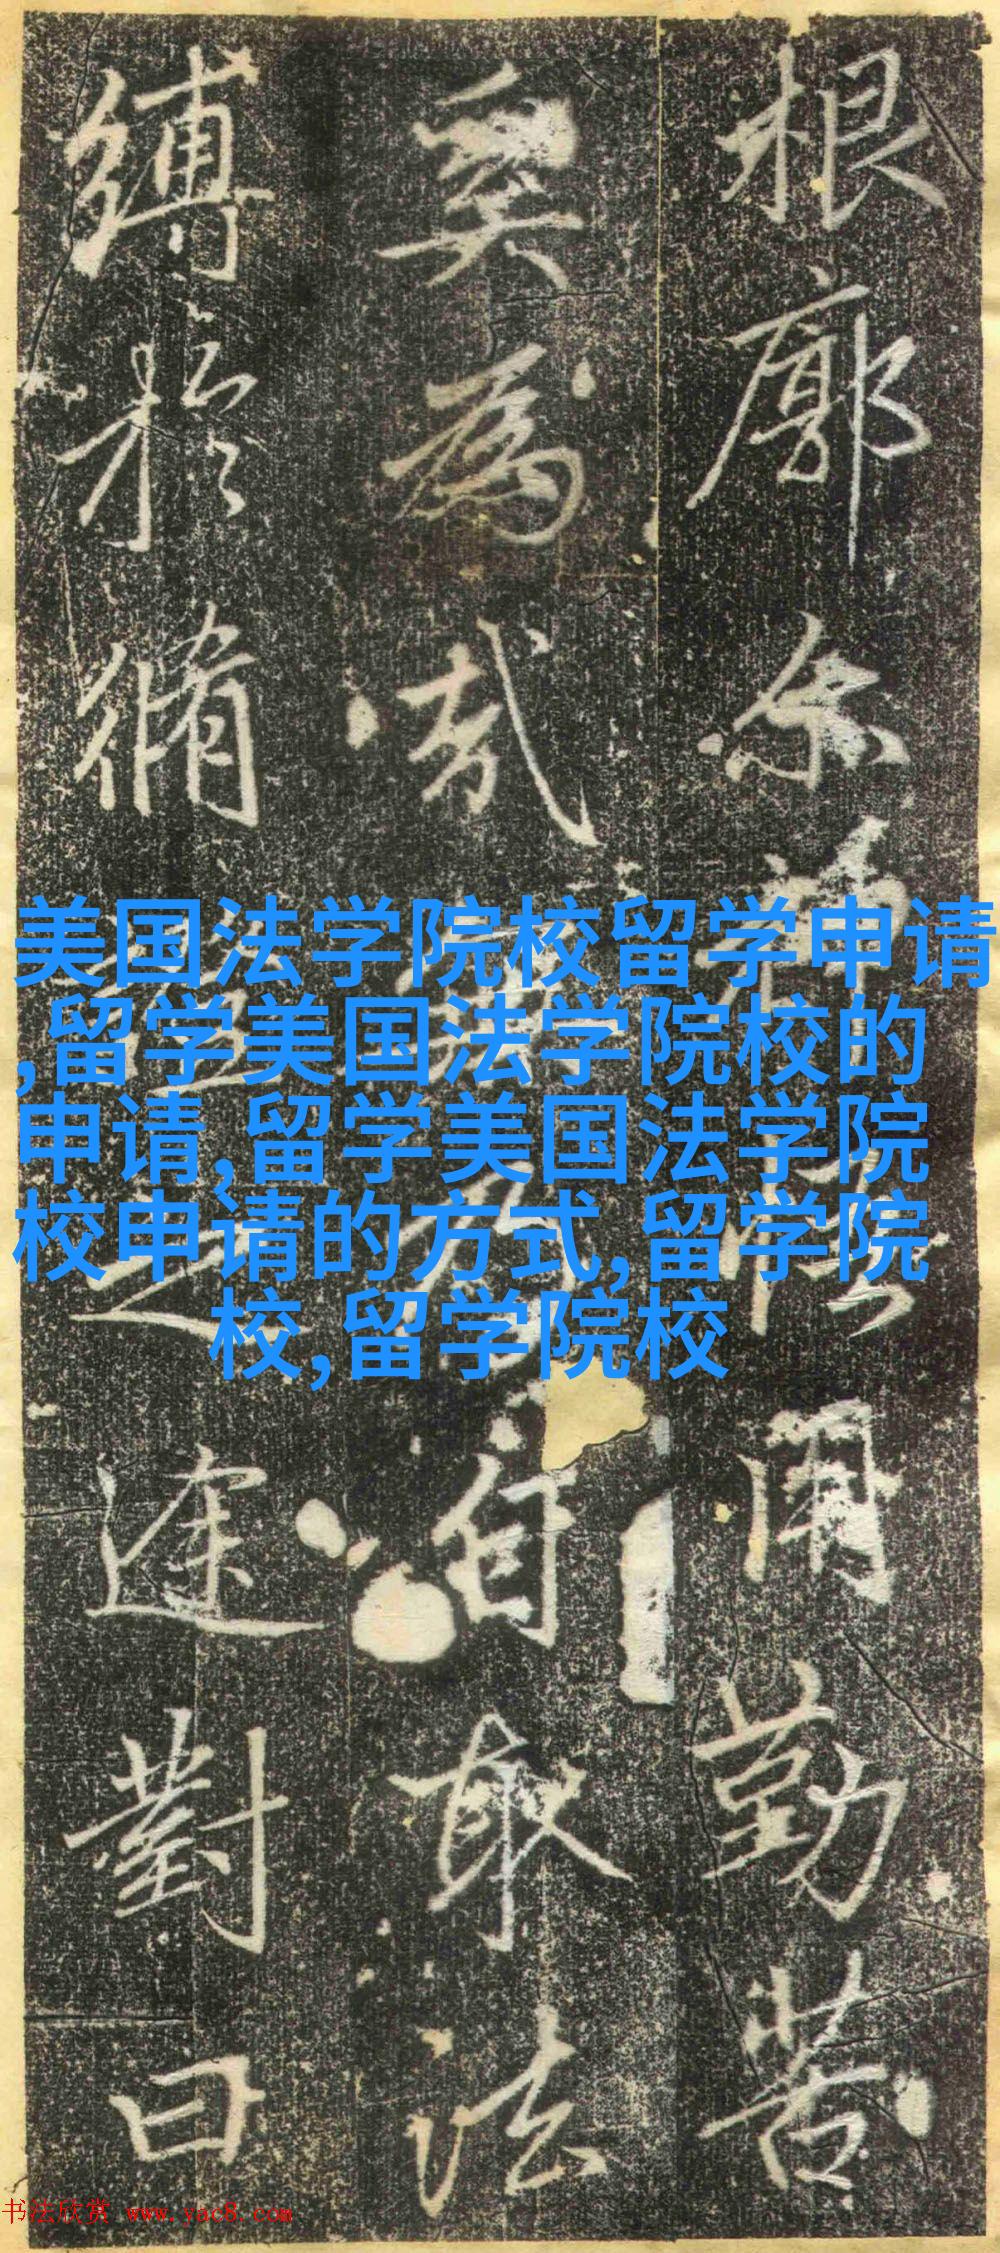 根廓尒用勤苦
奚為自取法
縛於脩之途對曰
美国法学院校留学申请
,留学美国法学院校的
申请,留学美国法学院
校申请的方式,留学院
校,留学院校
书法欣赏 www.yac8.com